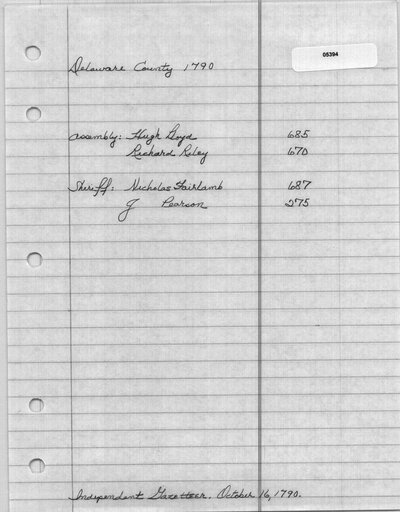 05394
Delaware County 1790
Assembly: Hugh Lloyd 685
Richard Riley 670
Sheriff: Nicholas Fairlamb 687
J Pearson 275
Independent Gazetteer, October 16, 1790.